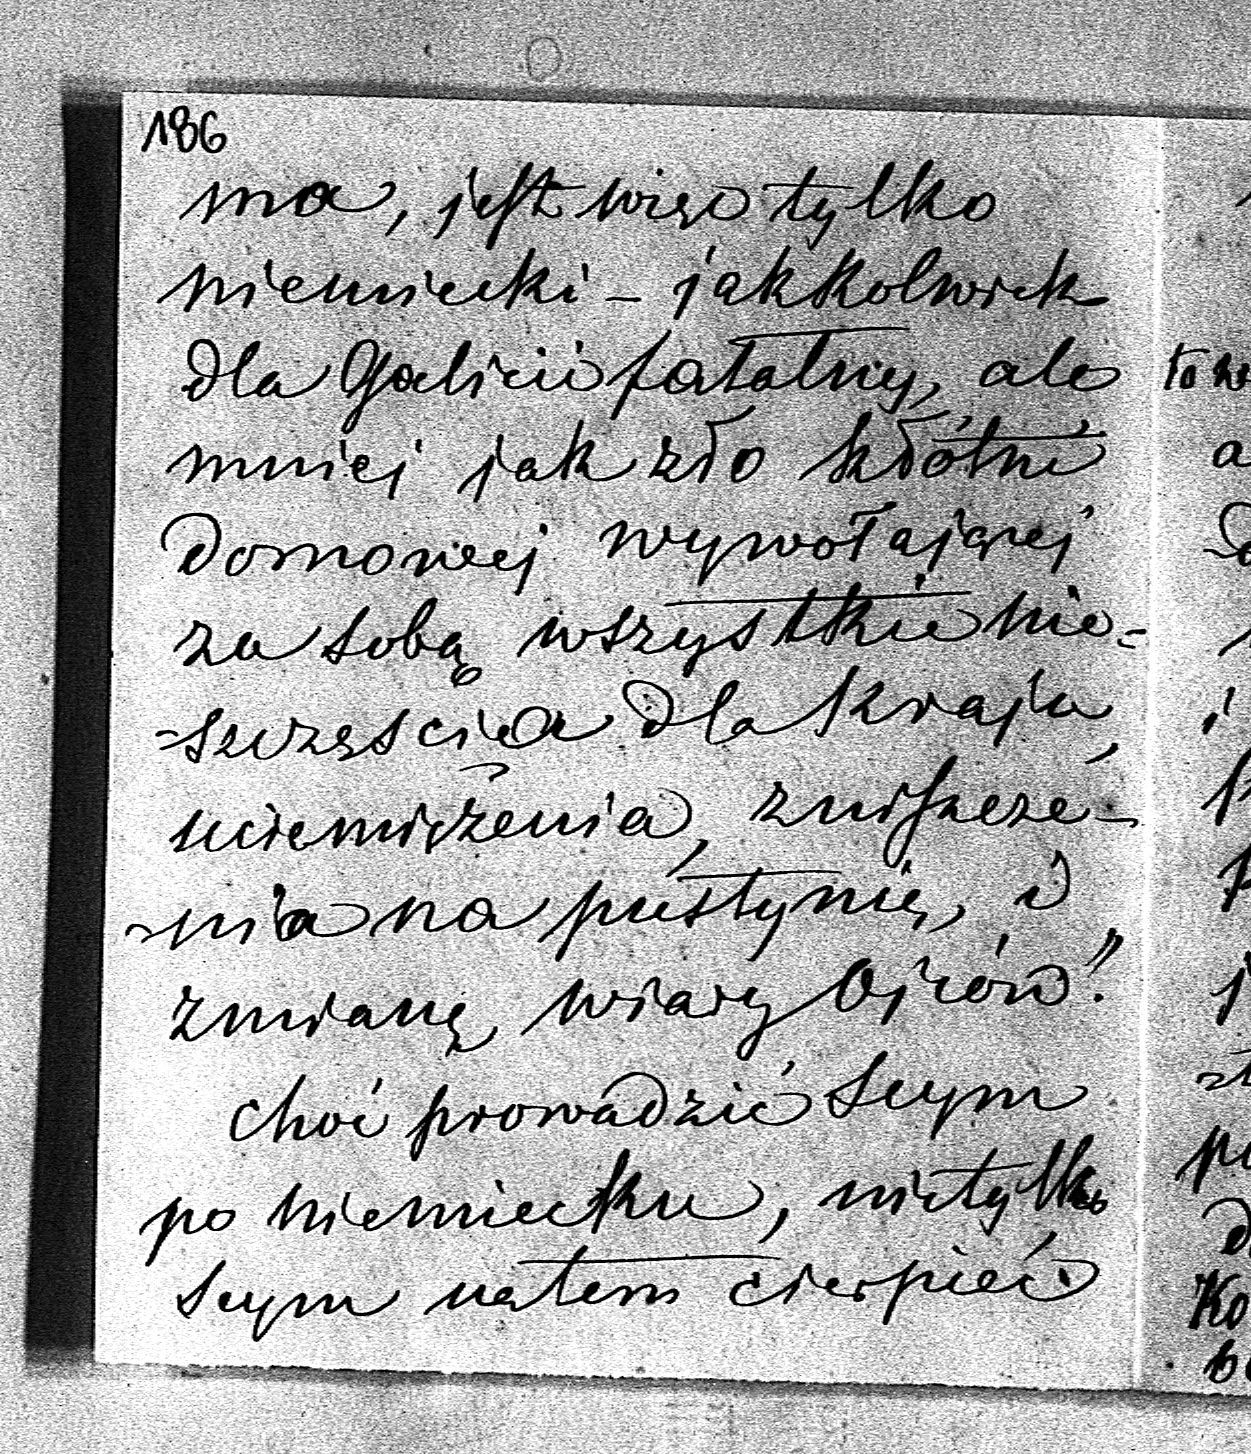 186
ma, jest więc tylko
niemiecki – jakkolwiek
dla Galicii fatalny, ale
mniej jak zło kłótni
domowej wywołającej
za sobą wszystkie nie=
=szczęścia dla kraju,
uciemiężenia, zniszcze-
-nia na pustynię, i
zmianę wiary Ojców".
choć prowadzić Seym
po niemiecku, nietylko
Seym na tem cierpieć